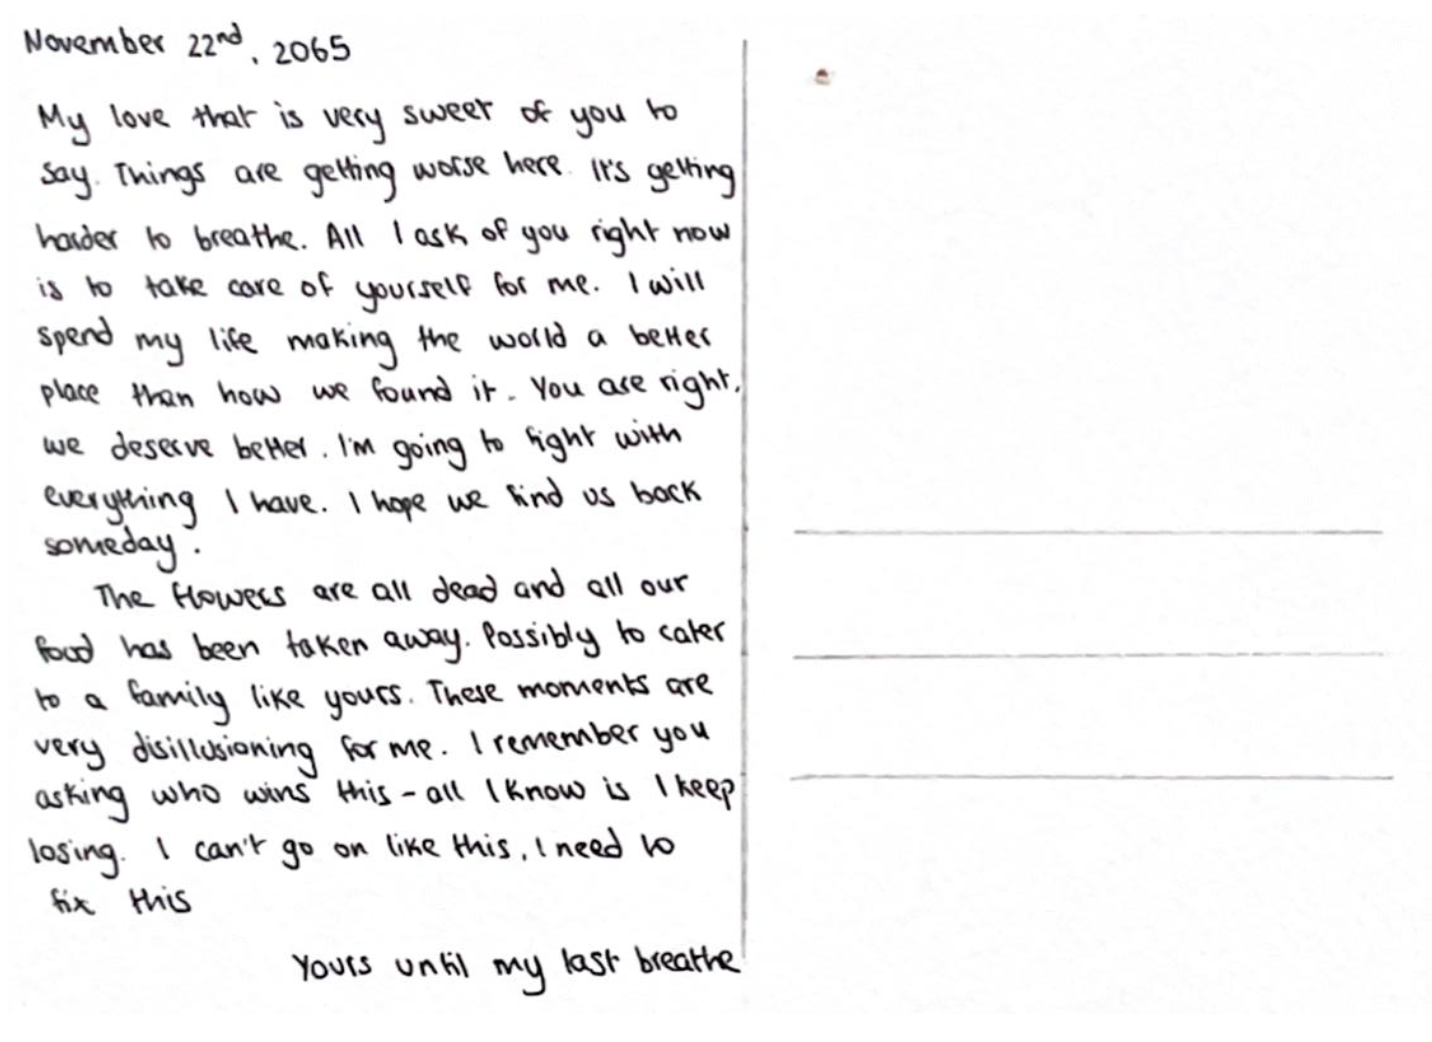 November 22nd, 2065
My love that is very sweet of you to
say. Things are getting worse here. It's getting
harder to breathe. All I ask of you right now
is to take care of yourself for me. I will
spend my life making the world a better
place than how we found it. You are right,
we deserve better. I'm going to fight with
everything I have. I hope we find us back
someday.
The flowers are all dead and all our
food has been taken away. Possibly to cater
to a family like yours. These moments are
very disillusioning for me. I remember you
asking who wins this - all I know is I keep
losing. I can't go on like this, I need to
fix this
Yours until my last breathe